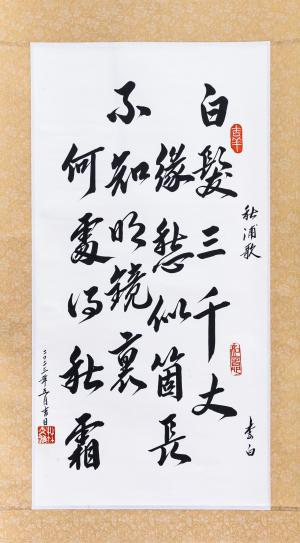 吉羊
秋浦歌
李白
白髮三千丈
緣愁似箇長
不知明鏡裏
何處得秋霜
二〇二三年五月吉日